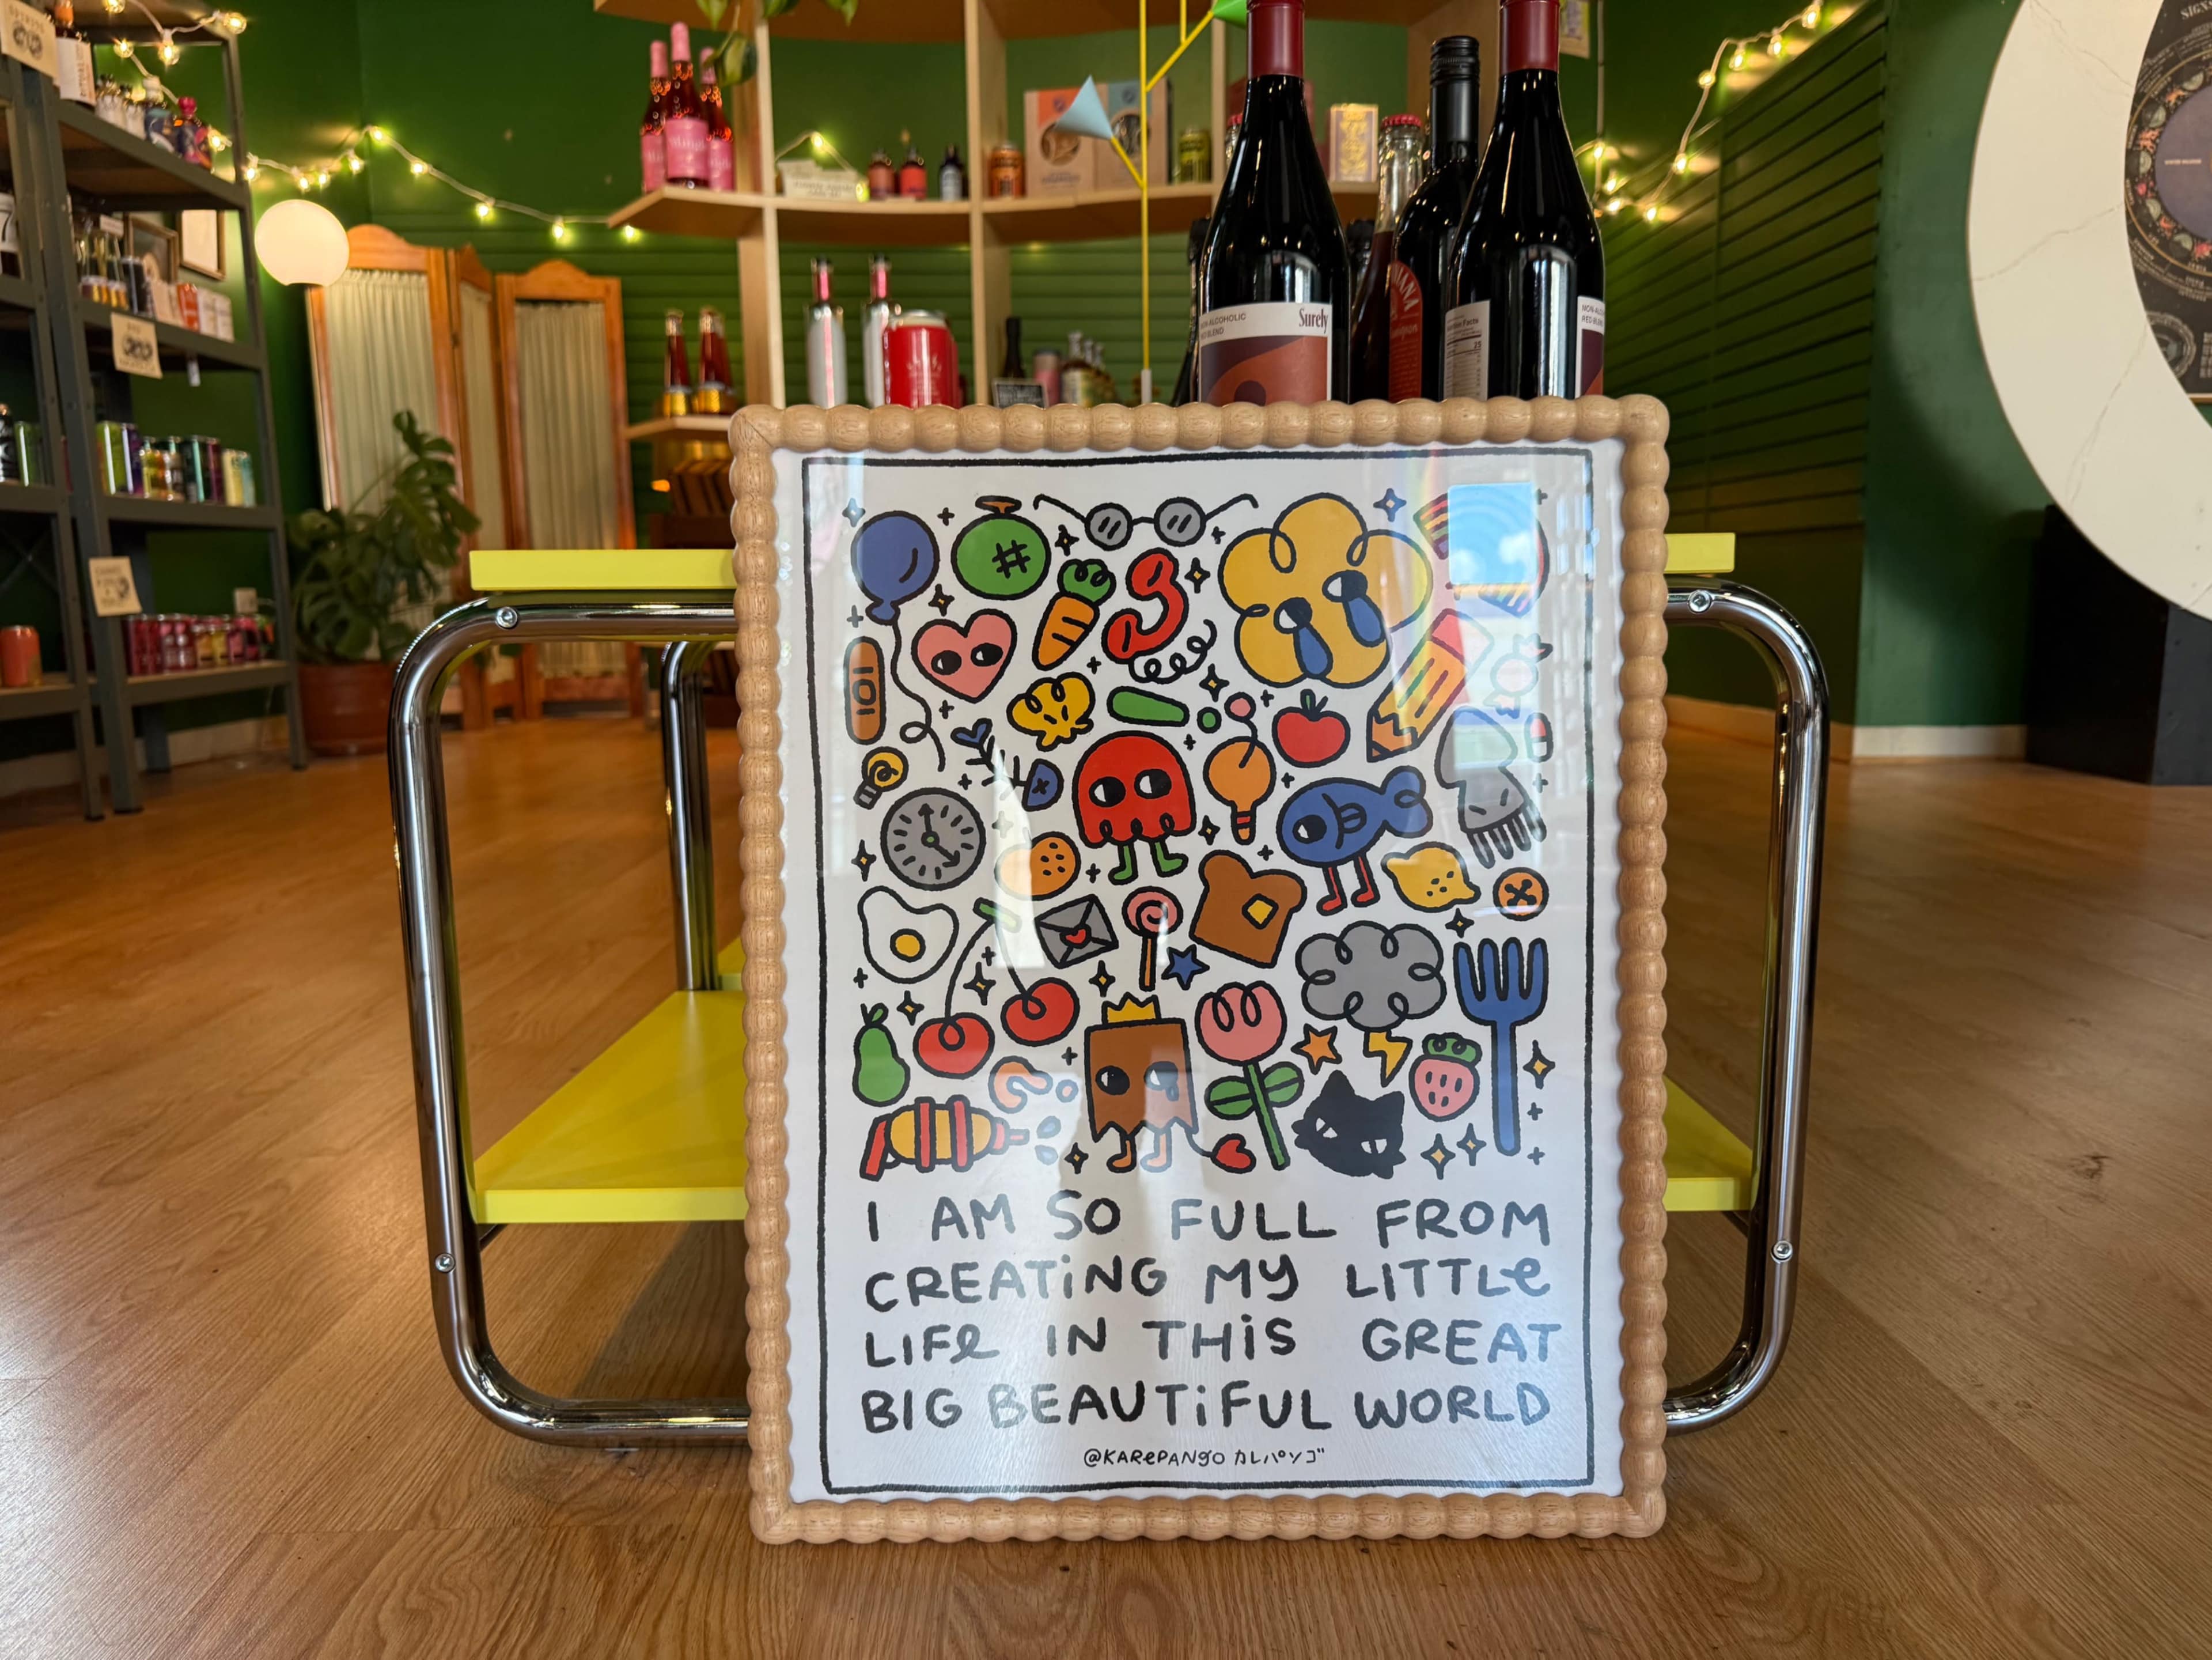 NON-ALCOHOLIC
RED BLEND
Surely
Nutrition Facts
25
I AM SO FULL FROM
CREATING MY LITTLE
LIFE IN THIS GREAT
BIG BEAUTIFUL WORLD
@KAREPANGO カレパンゴ